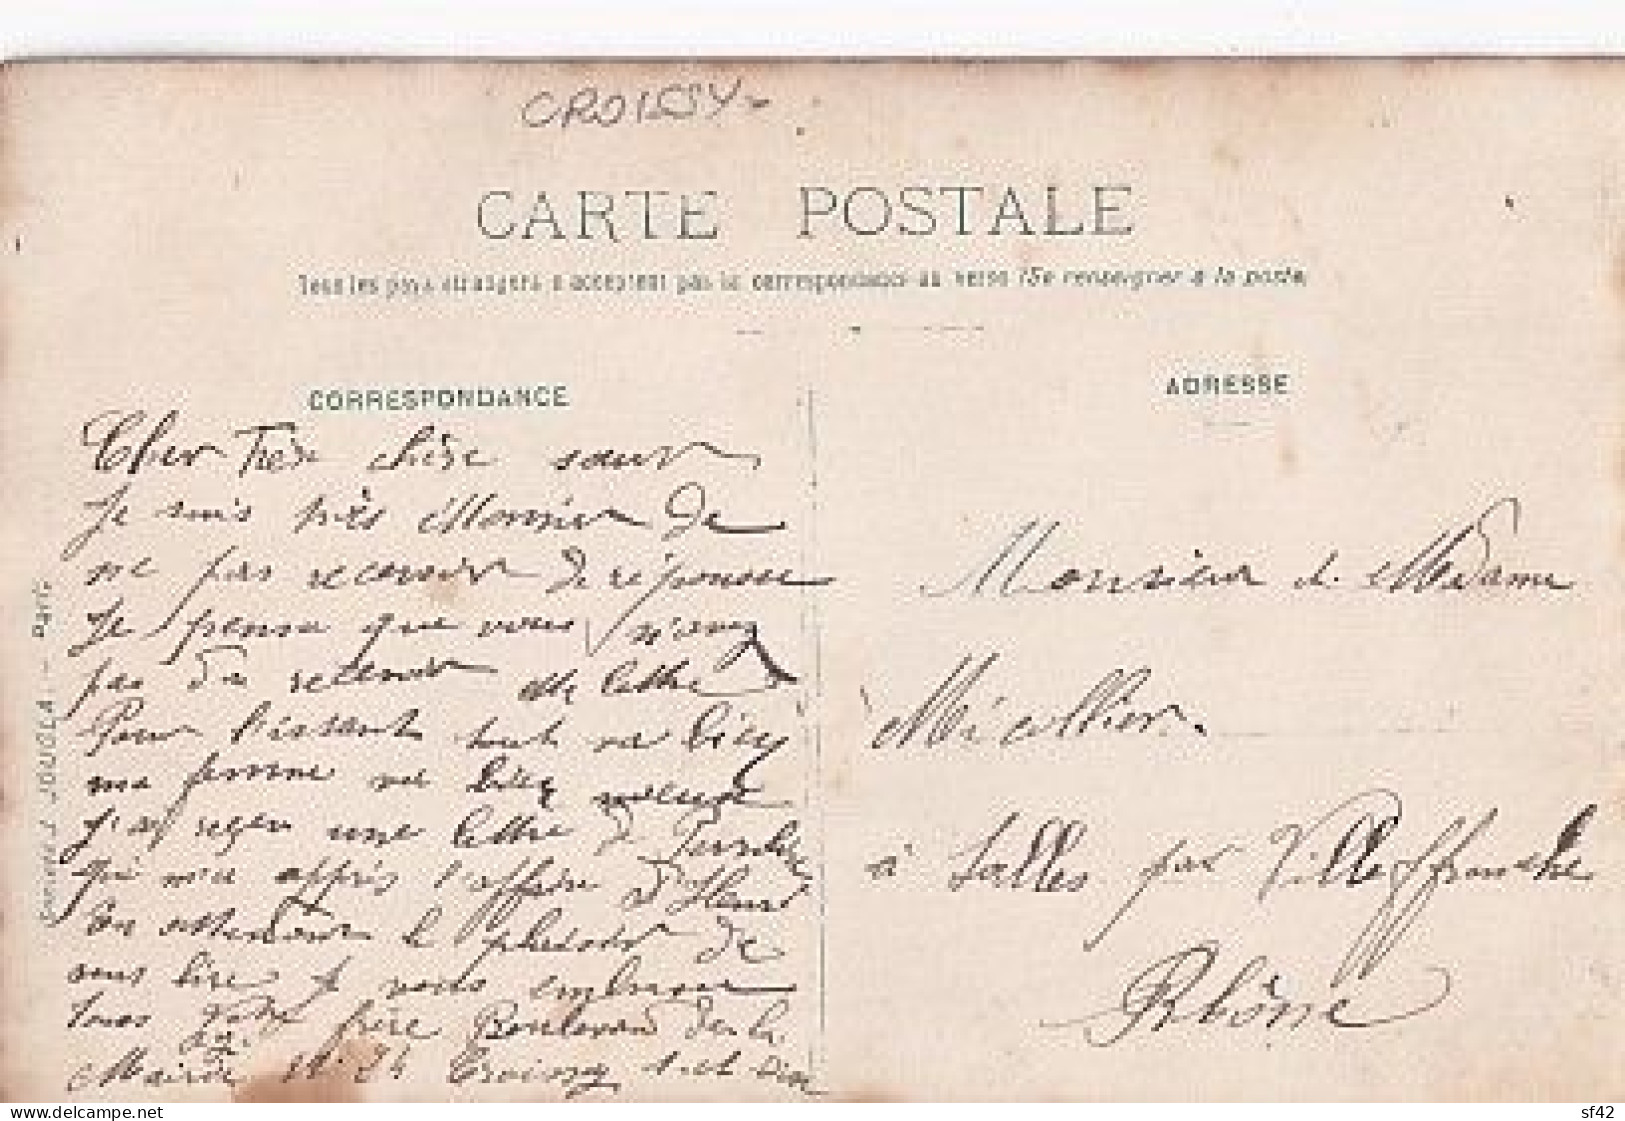 CROISSY
CARTE POSTALE
Tous les pays étrangers n'acceptent pas la correspondance au verso (Se renseigner à la poste)
CORRESPONDANCE
ADRESSE
Cher Frère chère sœur
Je suis très de
ne pas recevoir de réponsse
Je pensse que vous n'avez
pas du recevoir Me lettre
Pour l'issant tout va bien
ma femme va bien
J'ai reçu une lettre de
qui m'a appris l'affaire d'Henri
En attendant le plaisir de
vous lire Je vous embrasse
Tous Votre frère Boulevard de la
Mairie N. 24 Croissy S et Oise
JOUGLA - Paris
Monsieur et Madame
Micollier
à Salles par Villeffranche
Rhône
delcampe.net
sf42